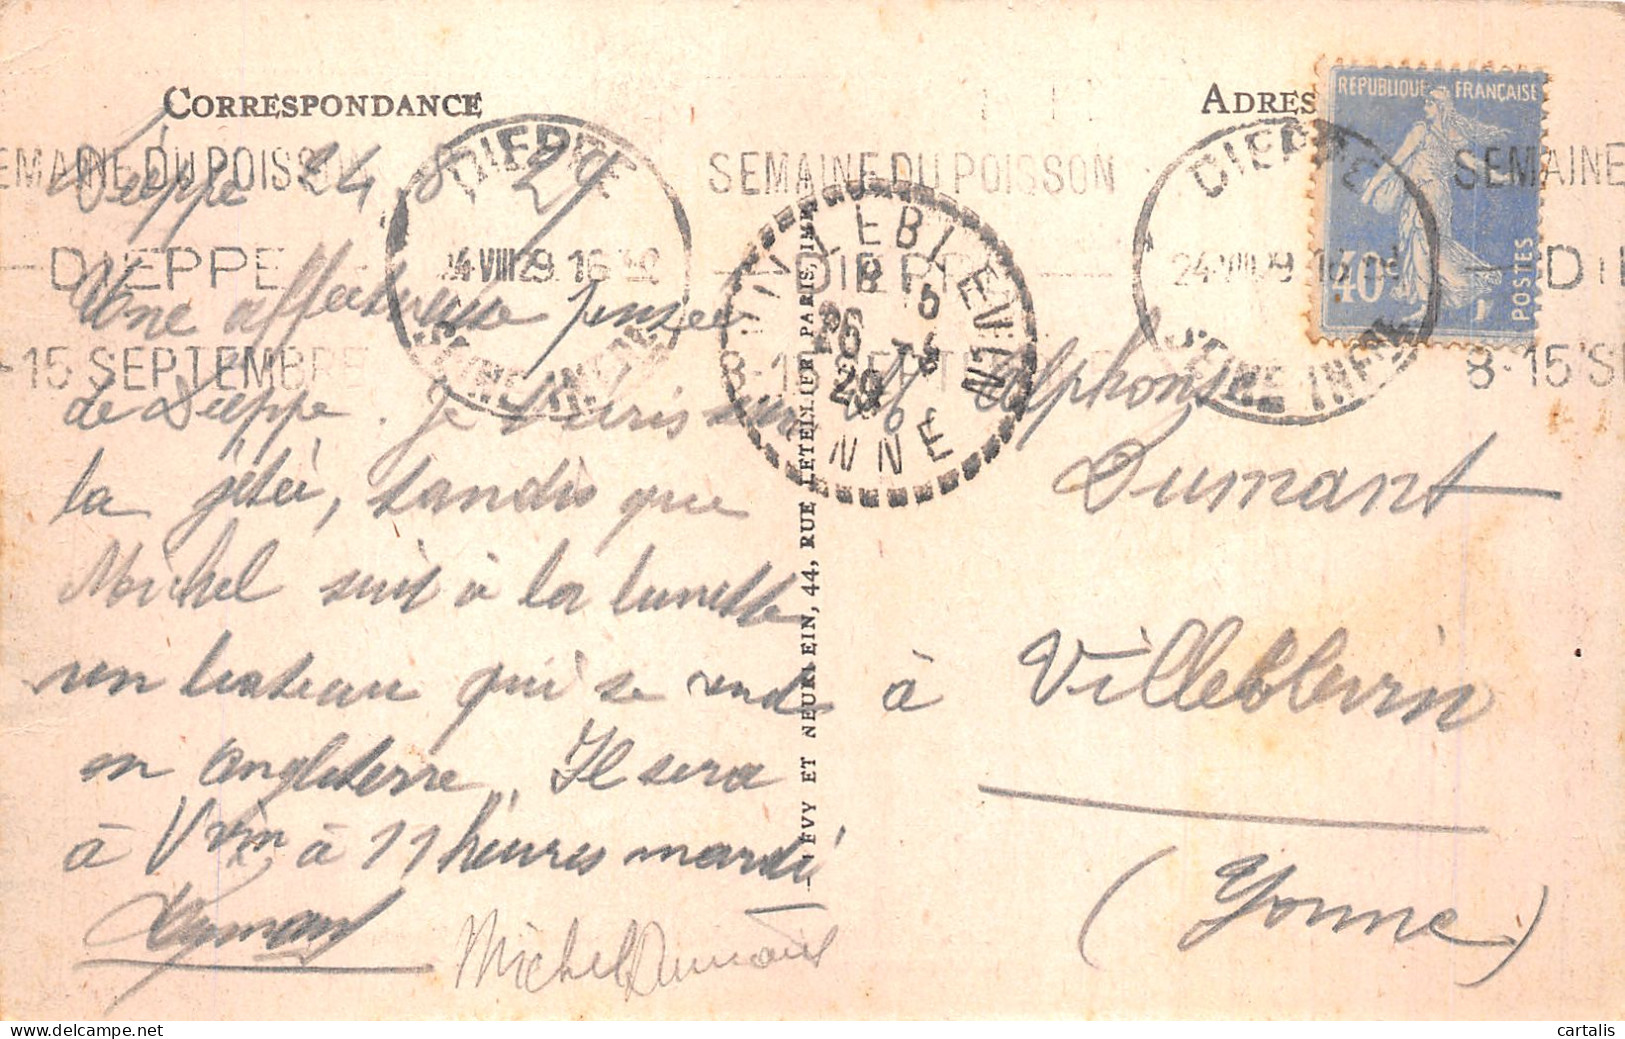 CORRESPONDANCE
ADRES
RÉPUBLIQUE FRANÇAISE
40c
POSTES
SEMAINE DU POISSON
DIEPPE
8-15 SEPTEMBRE
DIEPPE
24 VIII 29. 16
SEINE INFRE
SEMAINE DU POISSON
DIEPPE
8-15 SEPTEMBRE
DIEPPE
24 VIII 29
SEINE INFRE
SEMAINE
DIE
8-15 SE
VILLEBLEVIN
8 15
26
8
29
YONNE
Dieppe 24 8 29
Une affectueuse pensée
de Dieppe. Je suis sur
la jetée, tandis que
Michel suit à la lunette
un bateau qui se rend
en Angleterre. Il sera
à Vvin à 11 heures mardi
Michel Dumant
LÉVY ET NEURDEIN, 44, RUE LETELLIER PARIS, IMP.
M Alphonse
Dumant
à Villeblevin
(Yonne)
cartalis